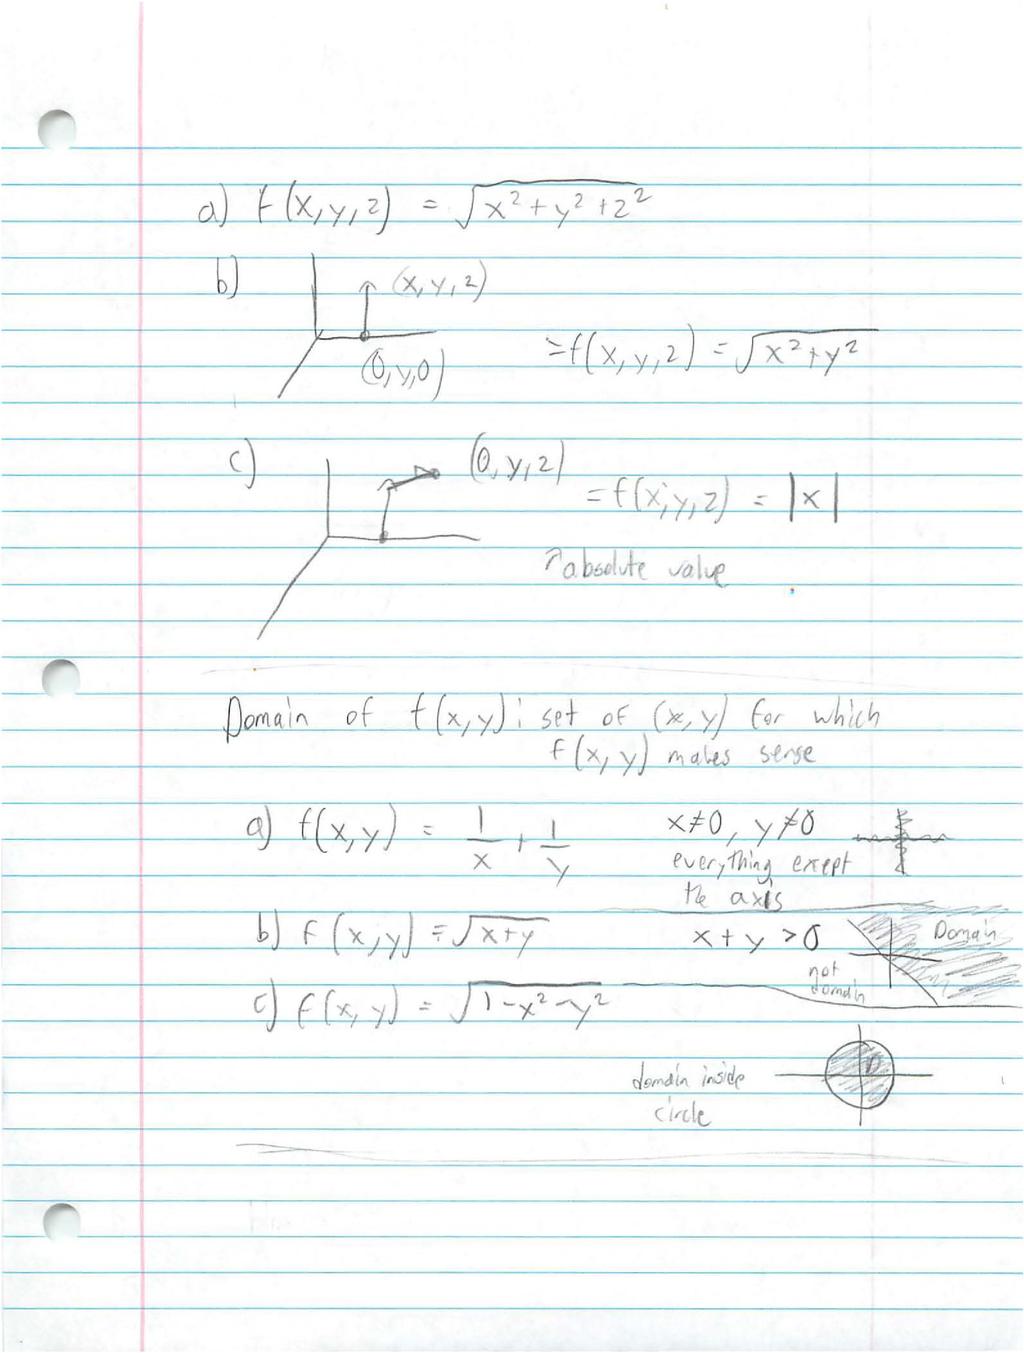 a) f(x,y,z) = √x²+y²+z²
b) (x,y,z)
(0,y,0) =f(x,y,z) = √x²+y²
c) (0,y,z)
=f(x,y,z) = |x|
↑absolute value
Domain of f(x,y): set of (x,y) for which
f(x,y) makes sense
a) f(x,y) = 1/x + 1/y x≠0, y≠0
everything except
the axis
b) f(x,y) = √x+y x+y>0 Domain
not
domain
c) f(x,y) = √1-x²-y²
D
domain inside
circle